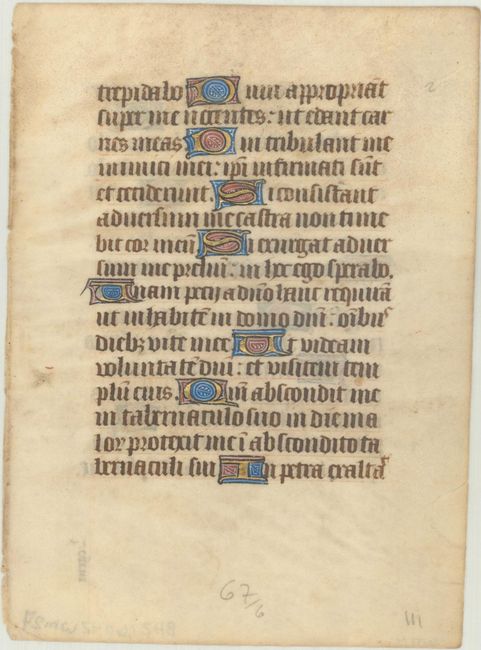 trepidabo Dum appropiāt
super me nocentes: ut edant car
nes meas. Qui tribulant me
inimici mei: ipi infirmati sūt
et ceciderunt. Si consistant
adversum me castra non time
bit cor meū Si exurgat adver
sum me preliū: in hoc ego sperabo.
Unam pecii a dn̄o hanc requirā
ut inhabitē in domo dn̄i: oīb9
dieb9 vite mee Ut videam
voluntatē dn̄i: et visitem tem
plū eius. Qm̄ abscondit me
in tabernaculo suo in die ma
lor protexit me ī abscondito ta
bernaculi sui In petra exalta
67/6
III
2